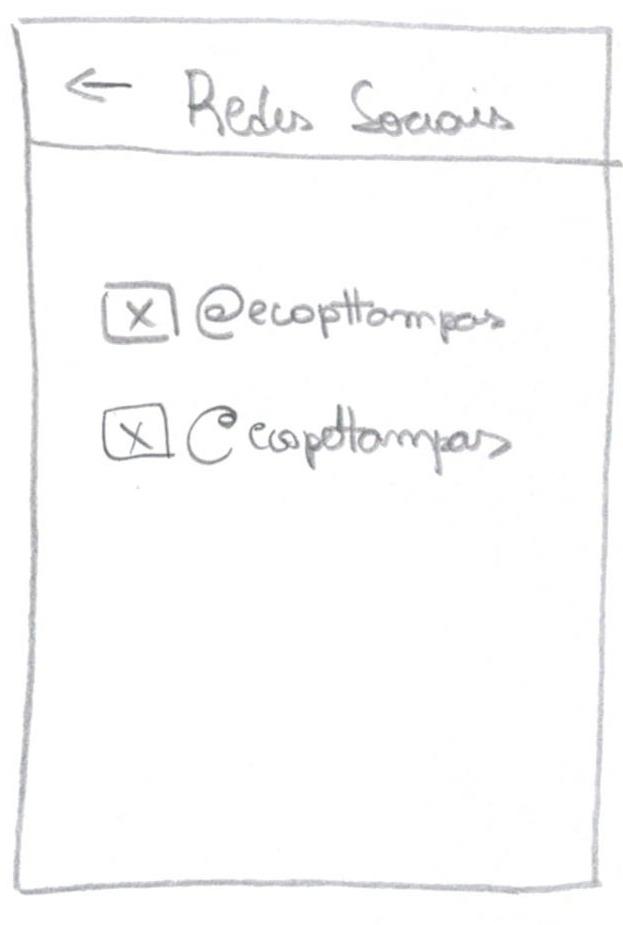 ← Redes Sociais
X @ecopttampas
X @ecopettampas